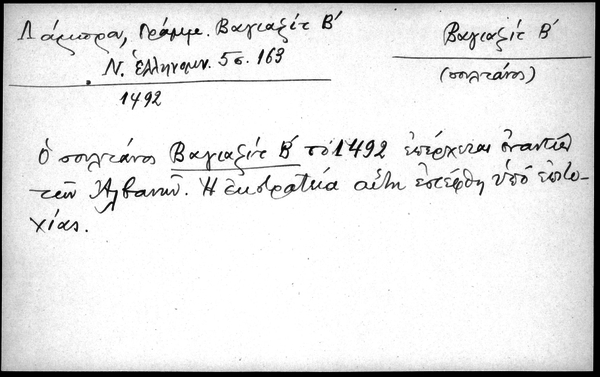 Λάμπρου, Γράμμ. Βαγιαζίτ Β΄
Ν. Ἑλληνομν. 5 σ. 163
1492
Βαγιαζίτ Β΄
(σουλτάνος)
Ὁ σουλτάνος Βαγιαζίτ Β΄ τὸ 1492 ἐπέρχεται ἐναντίον
τῶν Ἀλβανῶν. Ἡ ἐκστρατεία αὕτη ἐστέφθη ὑπὸ ἐπιτυ-
χίας.